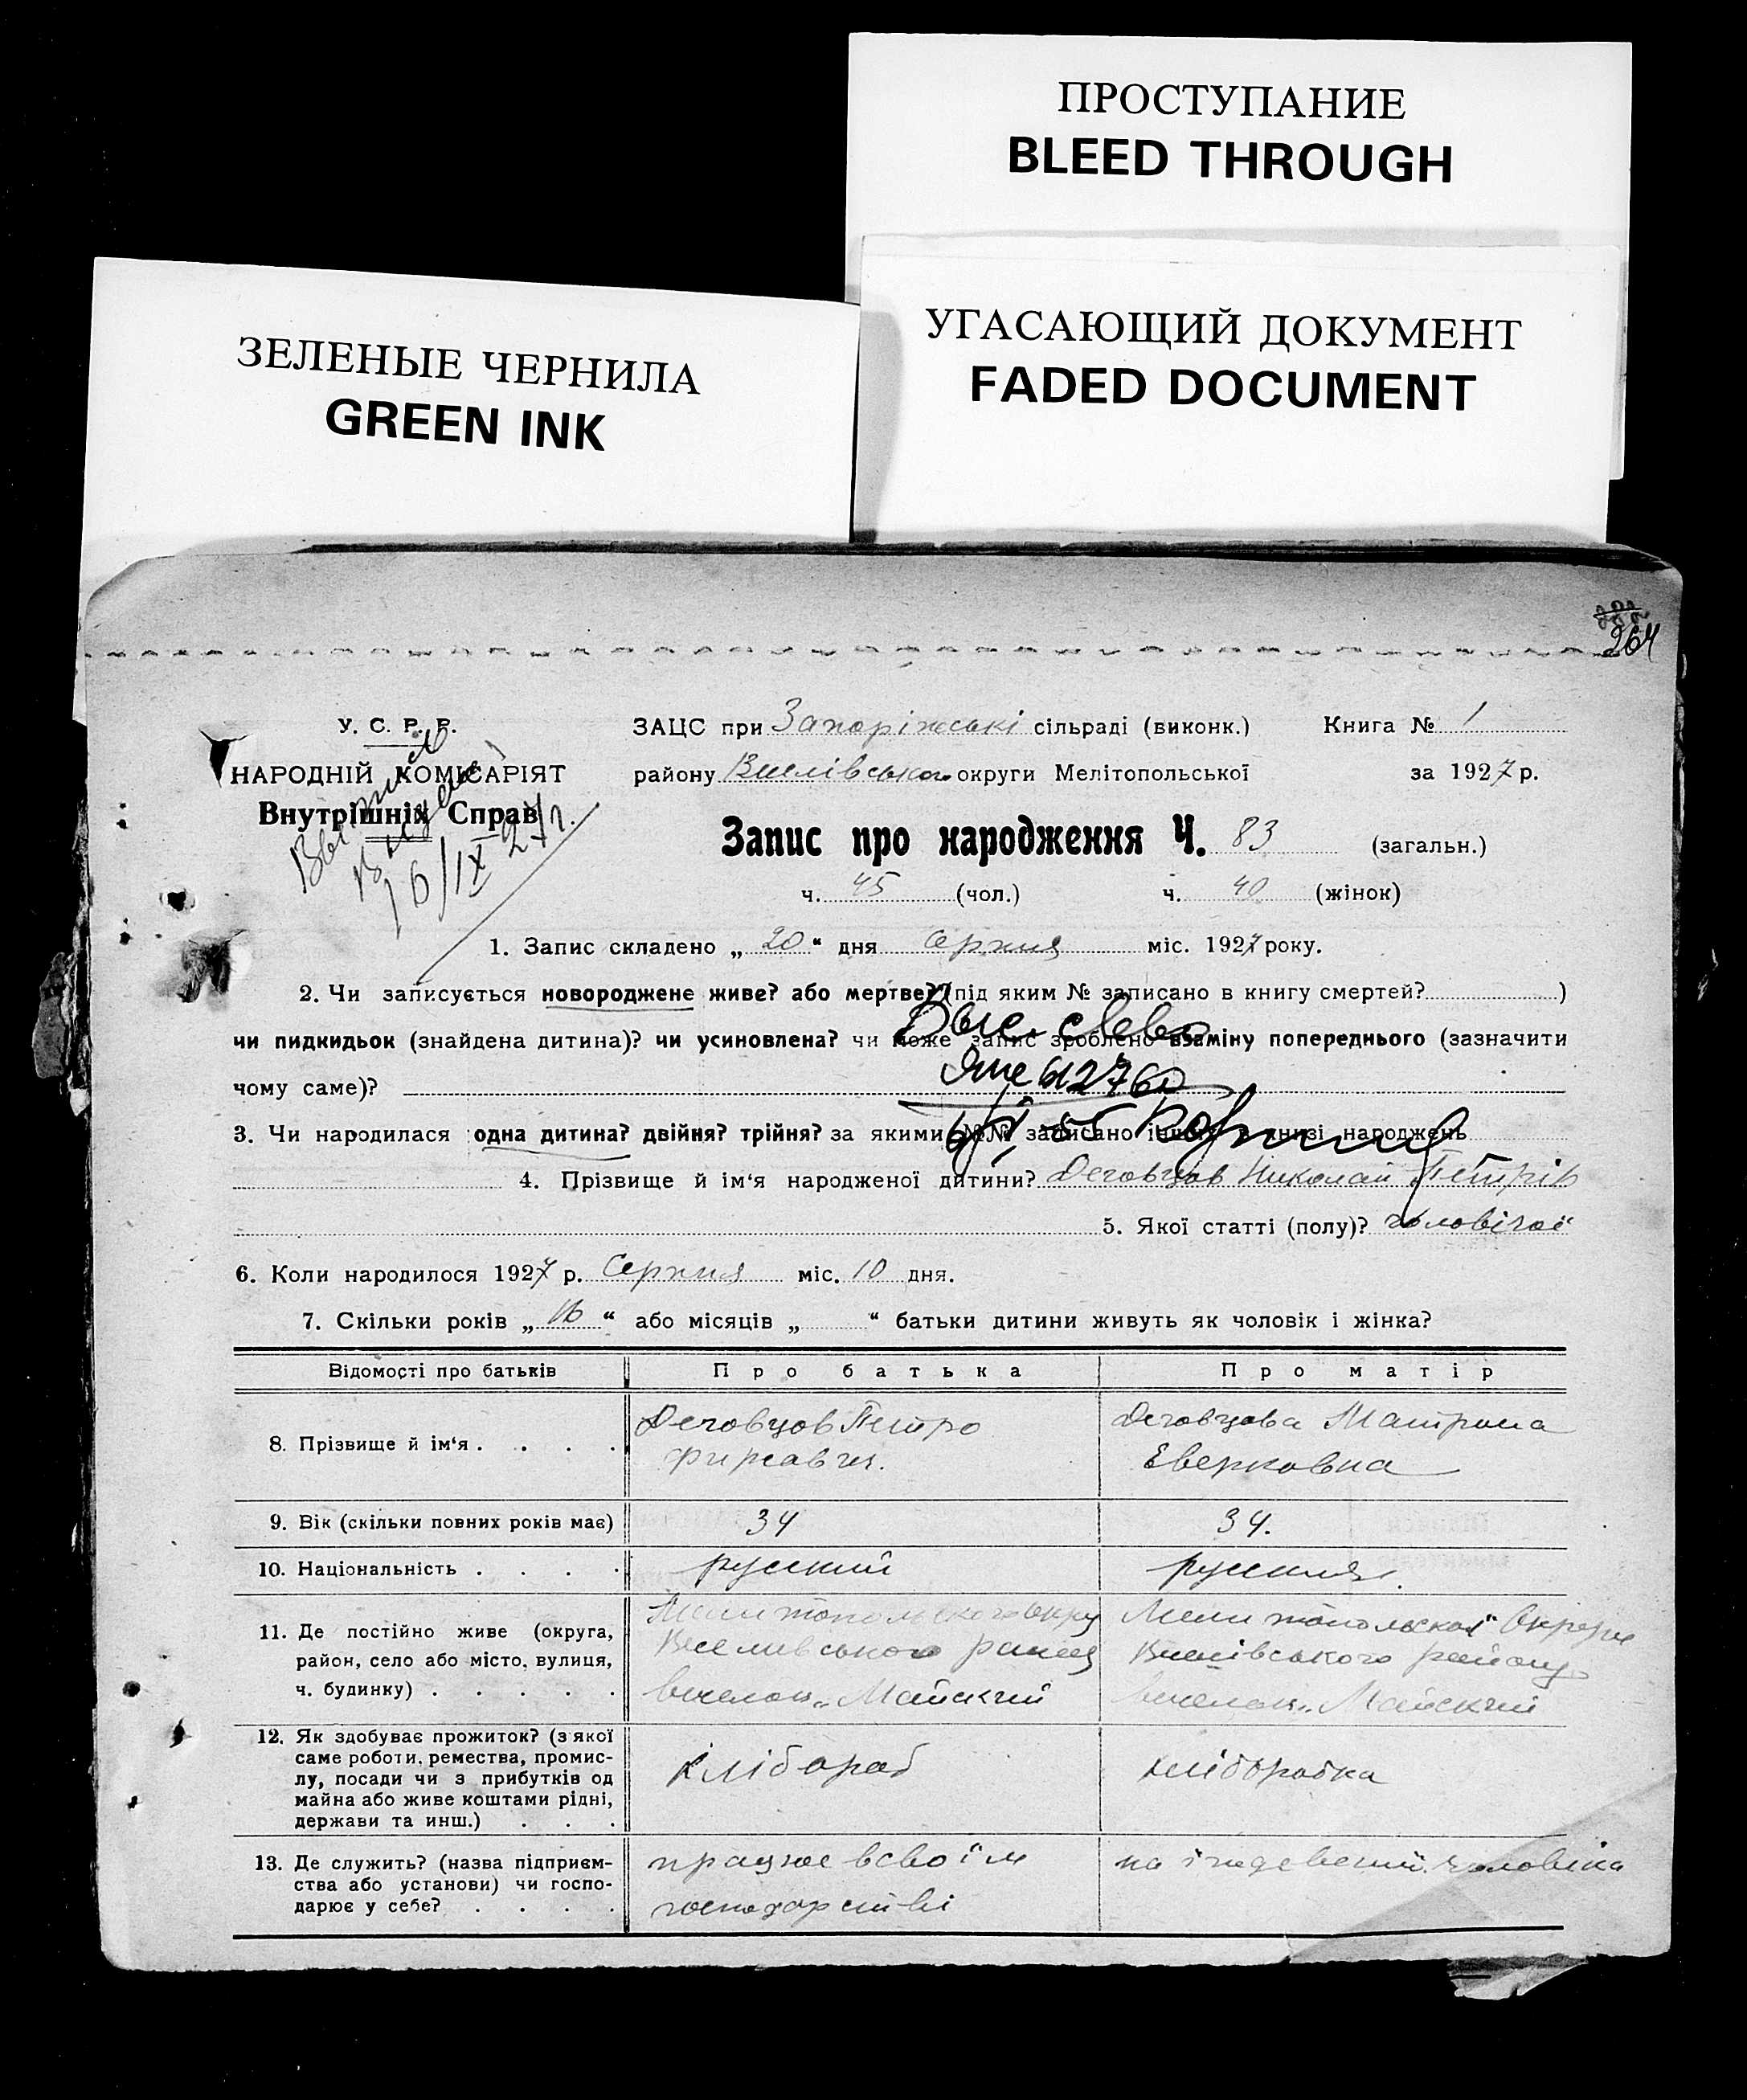 ПРОСТУПАНИЕ
BLEED THROUGH
УГАСАЮЩИЙ ДОКУМЕНТ
FADED DOCUMENT
ЗЕЛЕНЫЕ ЧЕРНИЛА
GREEN INK
264
У. С. Р. Р.
НАРОДНІЙ КОМІСАРІЯТ
Внутрішніх Справ
16/IX 27г.
ЗАЦС при Запоріжські сільраді (виконк.) Книга № 1
району округи Мелітопольської за 1927 р.
Запис про народження Ч. 83 (загальн.)
ч. 45 (чол.) ч. 40 (жінок)
1. Запис складено „ 20 “ дня серпня міс. 1927 року.
2. Чи записується новороджене живе? або мертве? (під яким № записано в книгу смертей? )
чи пидкидьок (знайдена дитина)? чи усиновлена? чи може запис зроблено взаміну попереднього (зазначити
чому саме)?
3. Чи народилася одна дитина? двійня? трійня? за якими №№ записано інших в книзі народжень
4. Прізвище й ім'я народженої дитини? Деговцов Николай Петрів
5. Якої статті (полу)? чоловічої
6. Коли народилося 1927 р. Серпня міс. 10 дня.
7. Скільки років „ 16 “ або місяців „ “ батьки дитини живуть як чоловік і жінка?
Відомості про батьків Про батька Про матір
8. Прізвище й ім'я . . . . Деговцов Петро Деговцова Матрона
9. Вік (скільки повних років має) 34 34.
10. Національність . . . . русский русская.
11. Де постійно живе (округа,
район, село або місто, вулиця,
ч. будинку) . . . . .
Веселивського
Майский Майский
12. Як здобуває прожиток? (з якої
саме роботи, ремества, промис-
лу, посади чи з прибутків од
майна або живе коштами рідні,
держави та инш.) . . .
хлібороб хліборобка
13. Де служить? (назва підприєм-
ства або установи) чи госпо-
дарює у себе? . . . .
працює в своїм
господарстві
на чоловіка